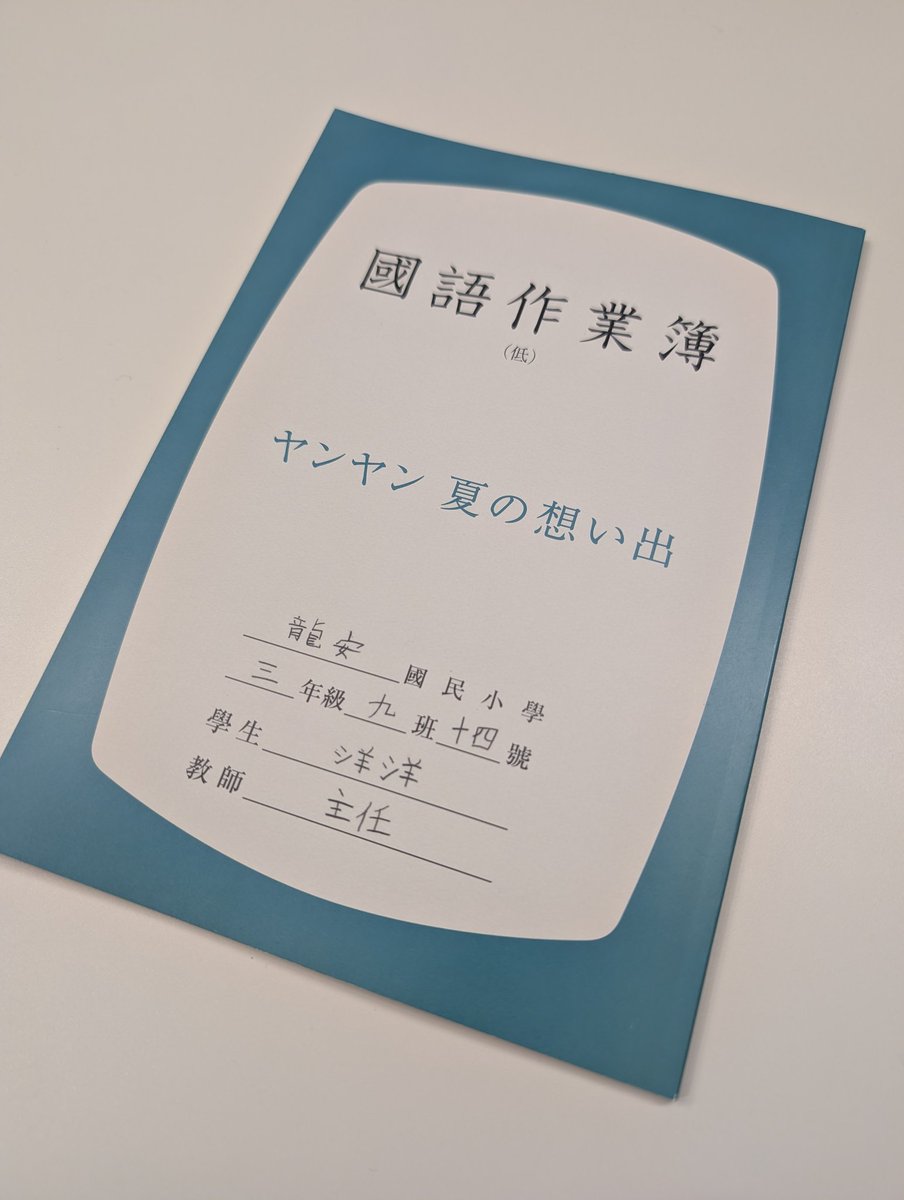 國語作業簿
（低）
ヤンヤン 夏の想い出
龍安國民小學
三年級九班十四號
學生 洋洋
教師 主任